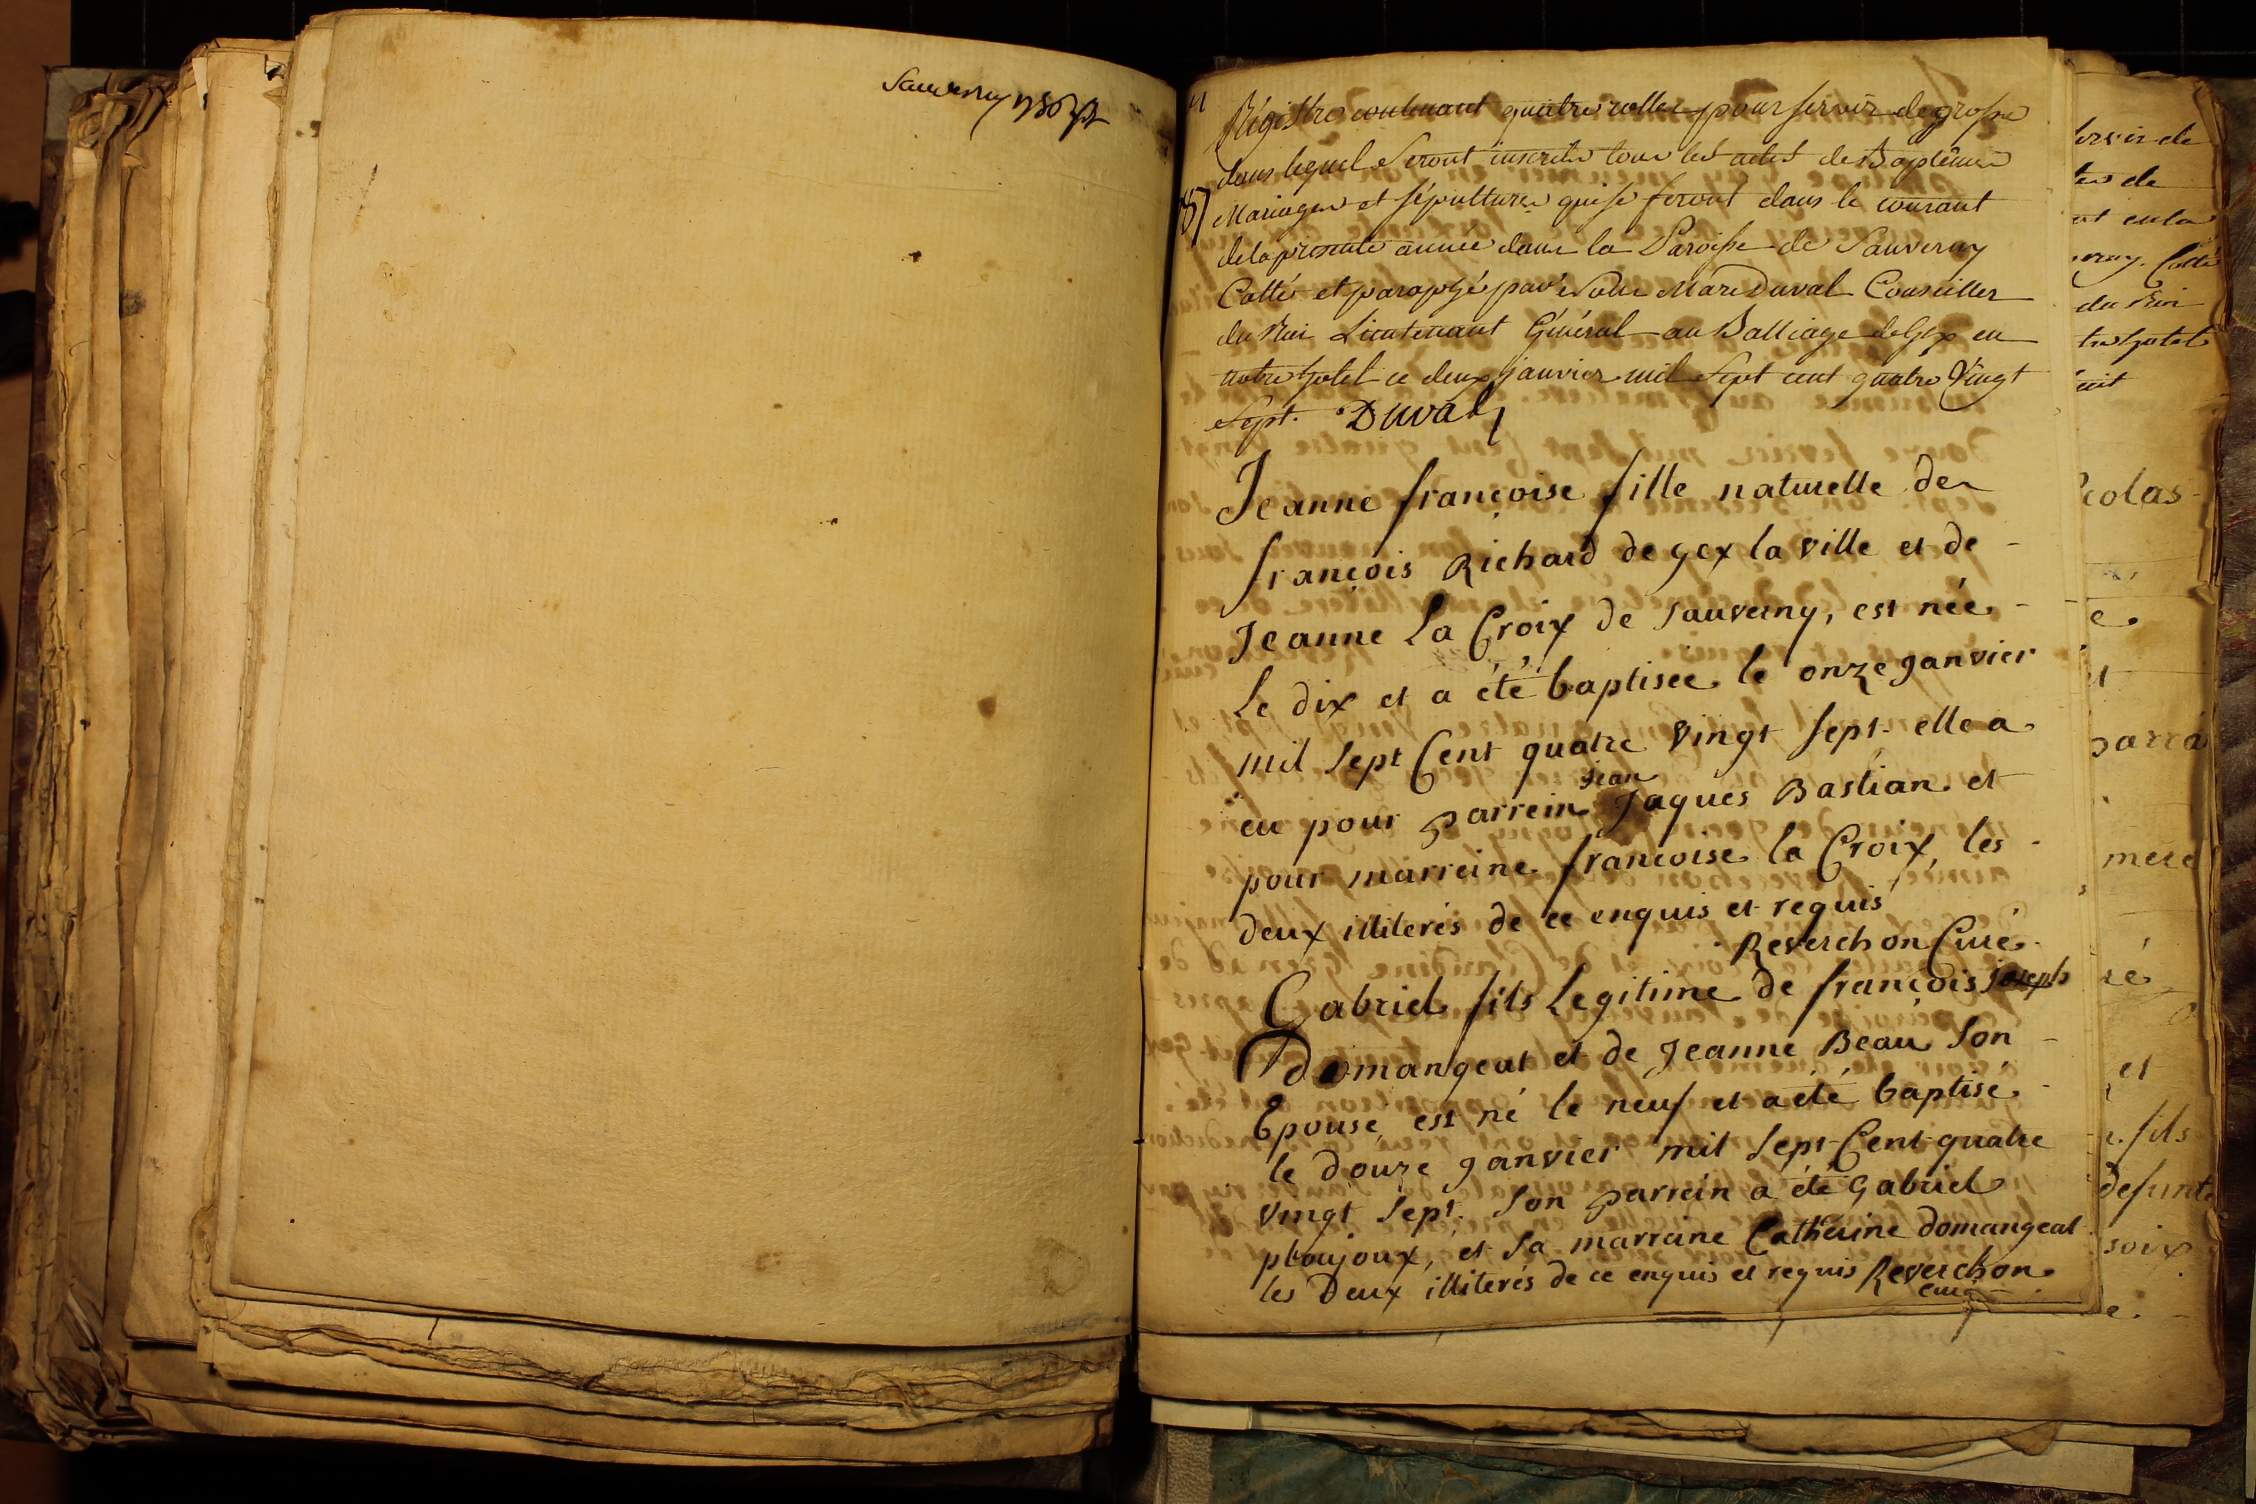 Sauverny 1786
Régistre contenant quatre rolles pour servir de grosse
dans lequel seront inscrits tous les actes de Baptêmes
Mariages et sépultures qui se feront dans le courant
87
de la presente année dans la Paroisse de Sauverny
Cotté et paraphé par Nous Mare Duval Conseiller
du Roi Lieutenant Général au Balliage de Gex en
notre hotel ce deux janvier mil sept cent quatre vingt
sept. Duval
Jeanne françoise fille naturelle de
françois Richard de gex la ville et de
Jeanne La Croix de sauverny, est née
le dix et a été baptisée le onze janvier
mil sept Cent quatre vingt sept. elle a
jean
eu pour parrein Jaques Bastian et
pour marreine françoise la Croix, les
deux illiterés de ce enquis et requis
Reverchon Curé
Gabriel fils Legitime de françois joseph
Domangeat et de Jeanne Beau son
Epouse est né le neuf et a été baptisé
le douze janvier mil sept Cent quatre
vingt sept. son parrein a été gabriel
ploujoux, et sa marraine Catherine domangeat
les Deux illiterés de ce enquis et requis Reverchon
curé
servir de
de
en la
Cotté
du Roi
hotel
colas
e
et
mere
ré
et
fils
defunte